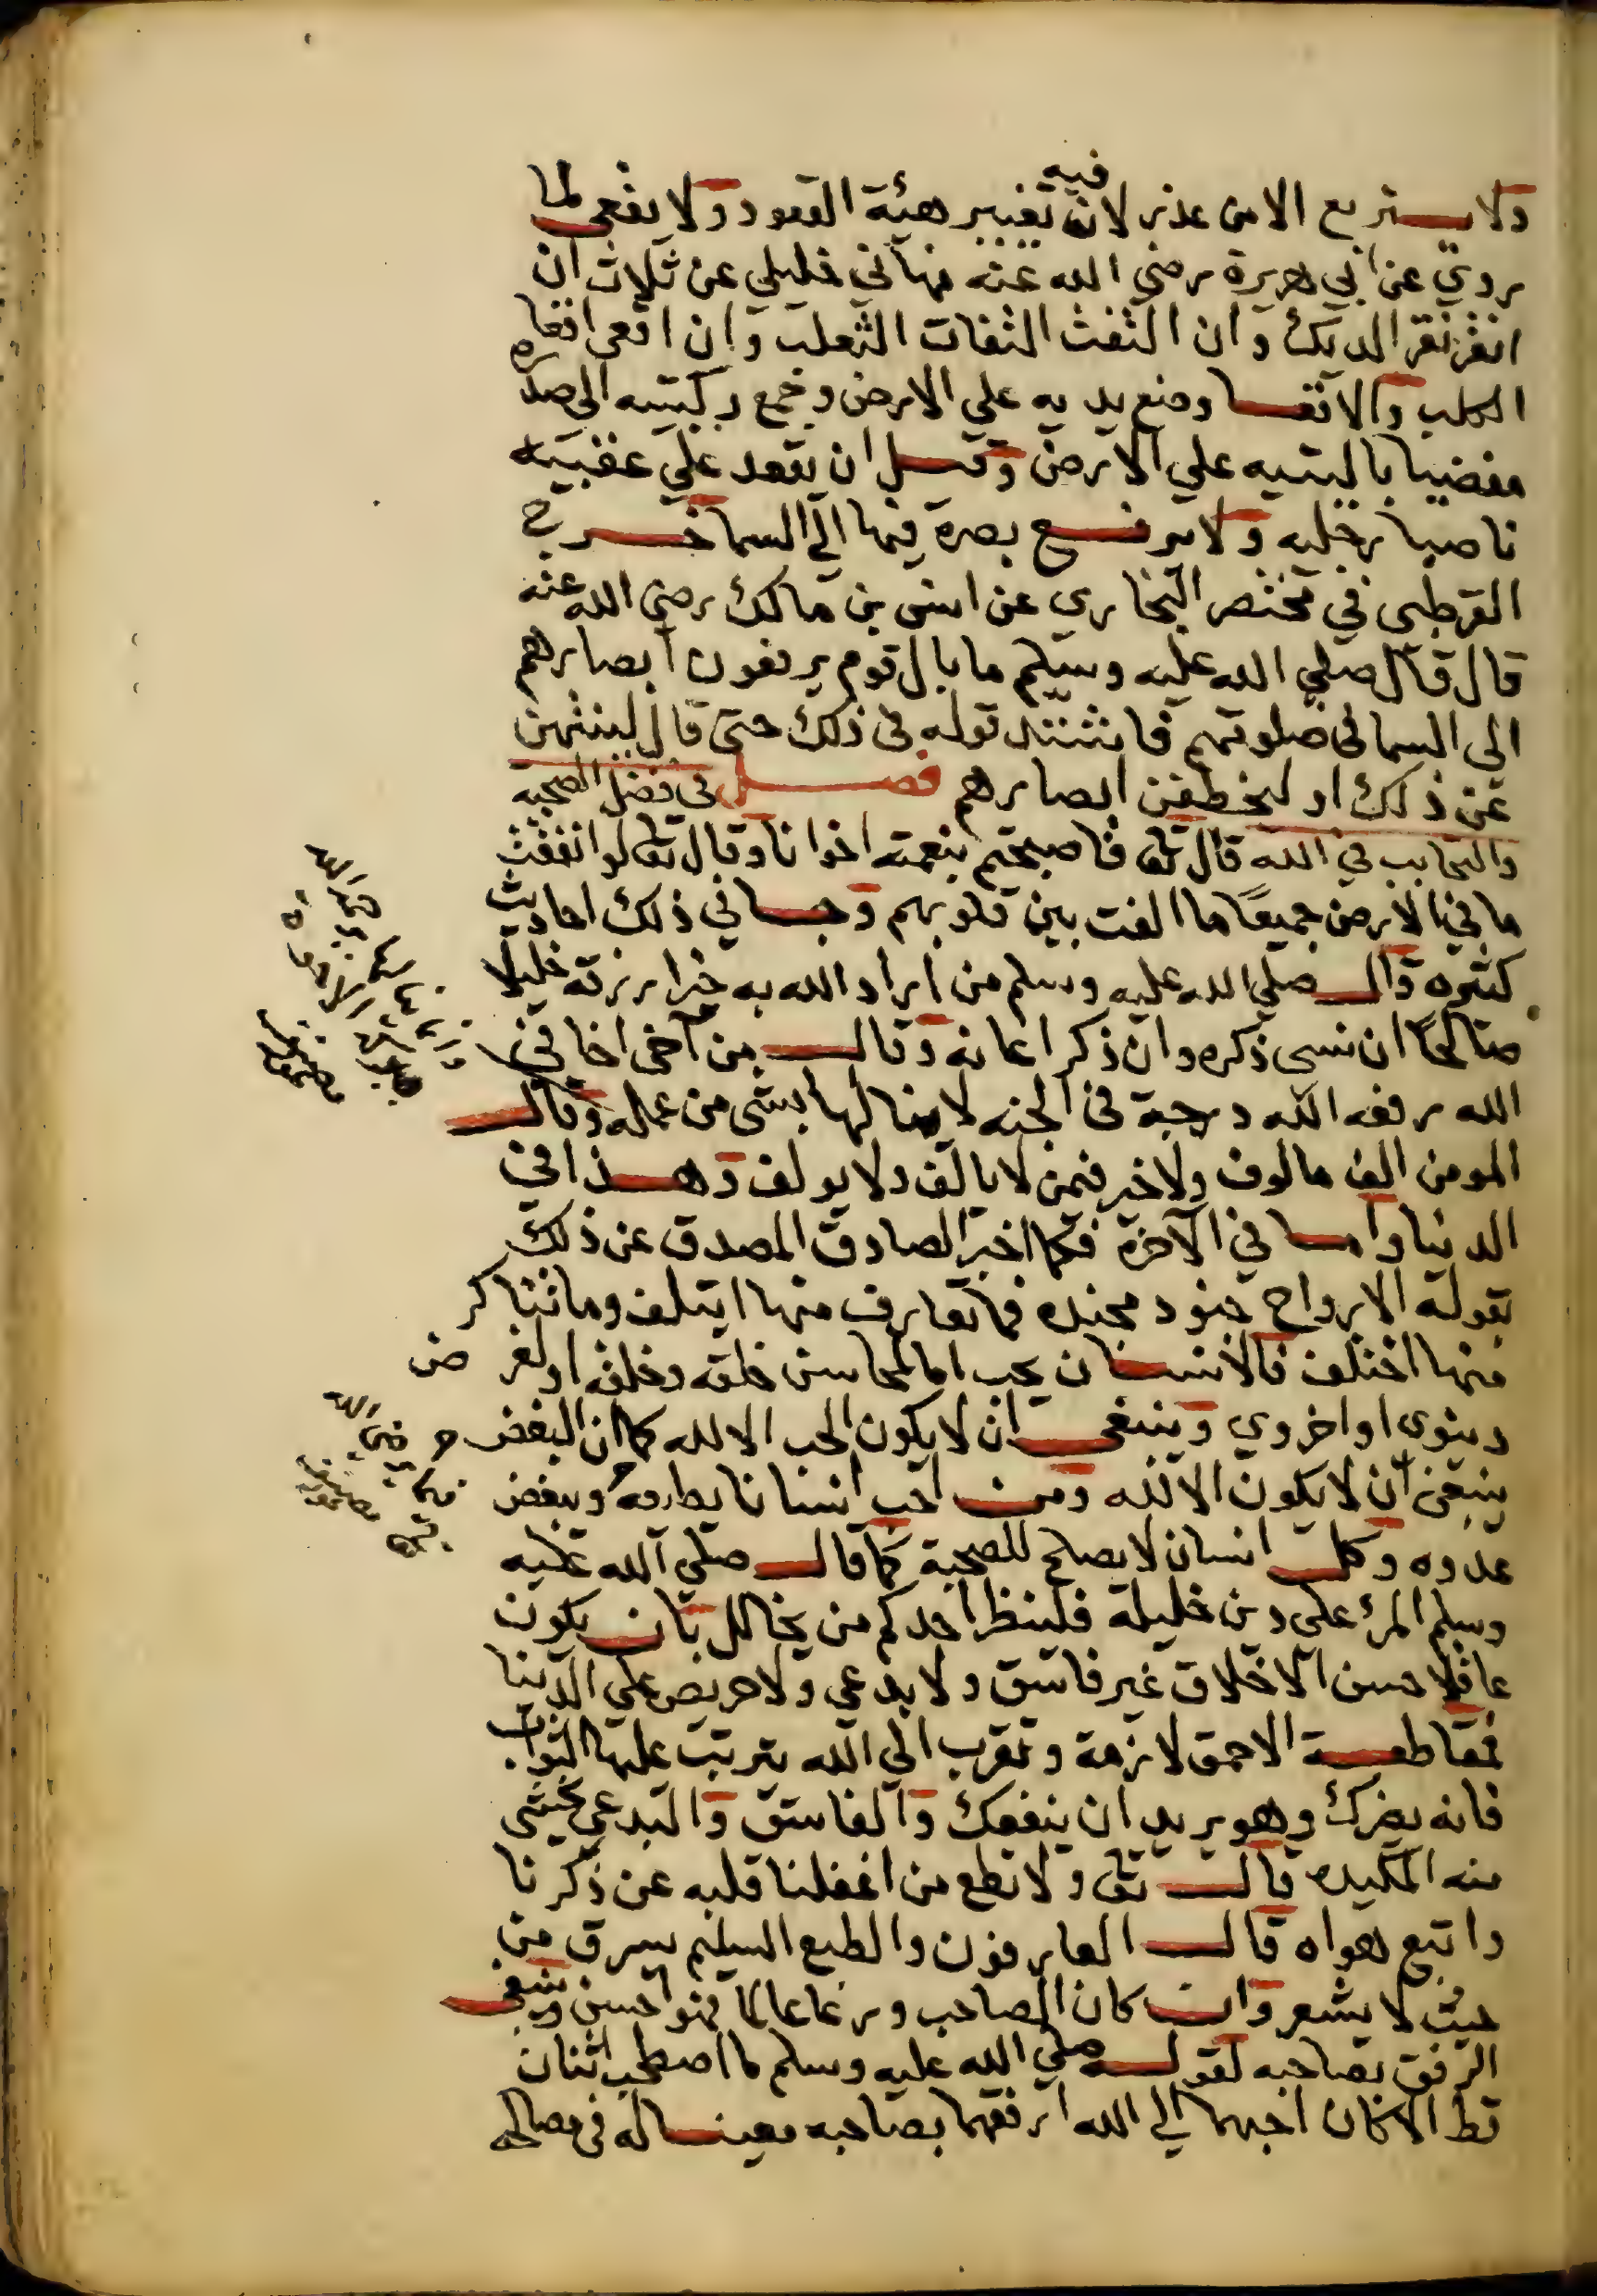 ولا يستربع الا من عذر لان فيه تغيير هيئة القعود ولا يقعي لما
روي عن ابي هريرة رضي الله عنه نهاني خليلي عن ثلاث ان
انقر نقر الديك وان التفت التفات الثعلب وان اقعي اقعا
الكلب والاقعا وضع يديه علي الارض وجمع ركبتيه الي صدره
مفضيا باليتيه علي الارض وقيل ان يقعد علي عقبيه
ناصبا رجليه ولا يرفع بصره فيها الي السما خرج
القرطبي في مختصر البخاري عن انس بن مالك رضي الله عنه
قال قال صلي الله عليه وسلم ما بال قوم يرفعون ابصارهم
الي السما في صلوتهم فاشتد قوله في ذلك حتي قال لينتهن
عن ذلك او لتخطفن ابصارهم فصل في فضل الصحبة
والتحابب في الله قال تعالى فاصبحتم بنعمته اخوانا وقال تعالى لو انفقت
ما في الارض جميعًا ما الفت بين قلوبهم وجا في ذلك احاديث
كثيره قال صلي الله عليه وسلم من اراد الله به خيرا رزقه خليلا
صالحًا ان نسي ذكره وان ذكر اعانه وقال من آخى اخا في
الله رفعه الله درجة في الجنه لا ينالها بشي من عمله وقال
المومن الف مالوف ولا خير فيمن لا يالف ولا يولف وهذا في
الدنيا واما في الآخرة فكما اخبر الصادق المصدق عن ذلك
بقوله الارواح جنود مجنده فما تعارف منها ايتلف وما تناكر
منها اختلف فالانسان يحب اما لمحاسن خلقه وخلقه او لغرض
دينوى او اخروي وينبغي ان لا يكون الحب الا لله كما ان البغض
ينبغي ان لا يكون الا لله ومن احب انسانا يطاوعه ويبغض
عدوه وكل انسان لا يصلح للصحبة كما قال صلي الله عليه
وسلم المرئ علي دين خليله فلينظر احدكم من يخالل بان يكون
عاقلا حسن الاخلاق غير فاسق ولا بدعي ولا حريص علي الدنيا
فمقاطعة الاحمق لازمة وتقرب الي الله يترتب عليها الثواب
فانه يضرك وهو يريد ان ينفعك والفاسق والبدعي يخشي
منه المكيده قال تعالى ولا تطع من اغفلنا قلبه عن ذكرنا
واتبع هواه قال العارفون والطبع السليم يسرق من
حيث لا يشعر وان كان الصاحب ورعا عالما فهو احسن وينبغي
الرفق بصاحبه لقوله صلي الله عليه وسلم ما اصطحب اثنان
قط الا كان احبهما الي الله ارفقهما بصاحبه معينا له في مصالحه